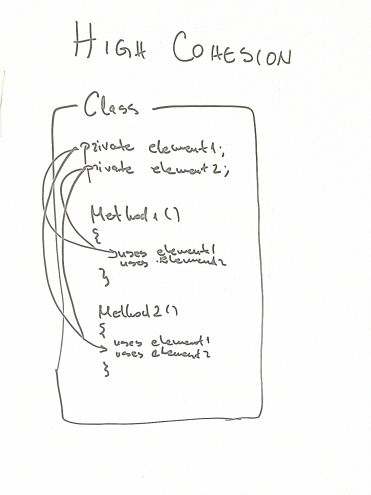 HIGH COHESION
Class
private element1;
private element2;
Method1()
{
uses element1
uses element2
}
Method2()
{
uses element1
uses element2
}